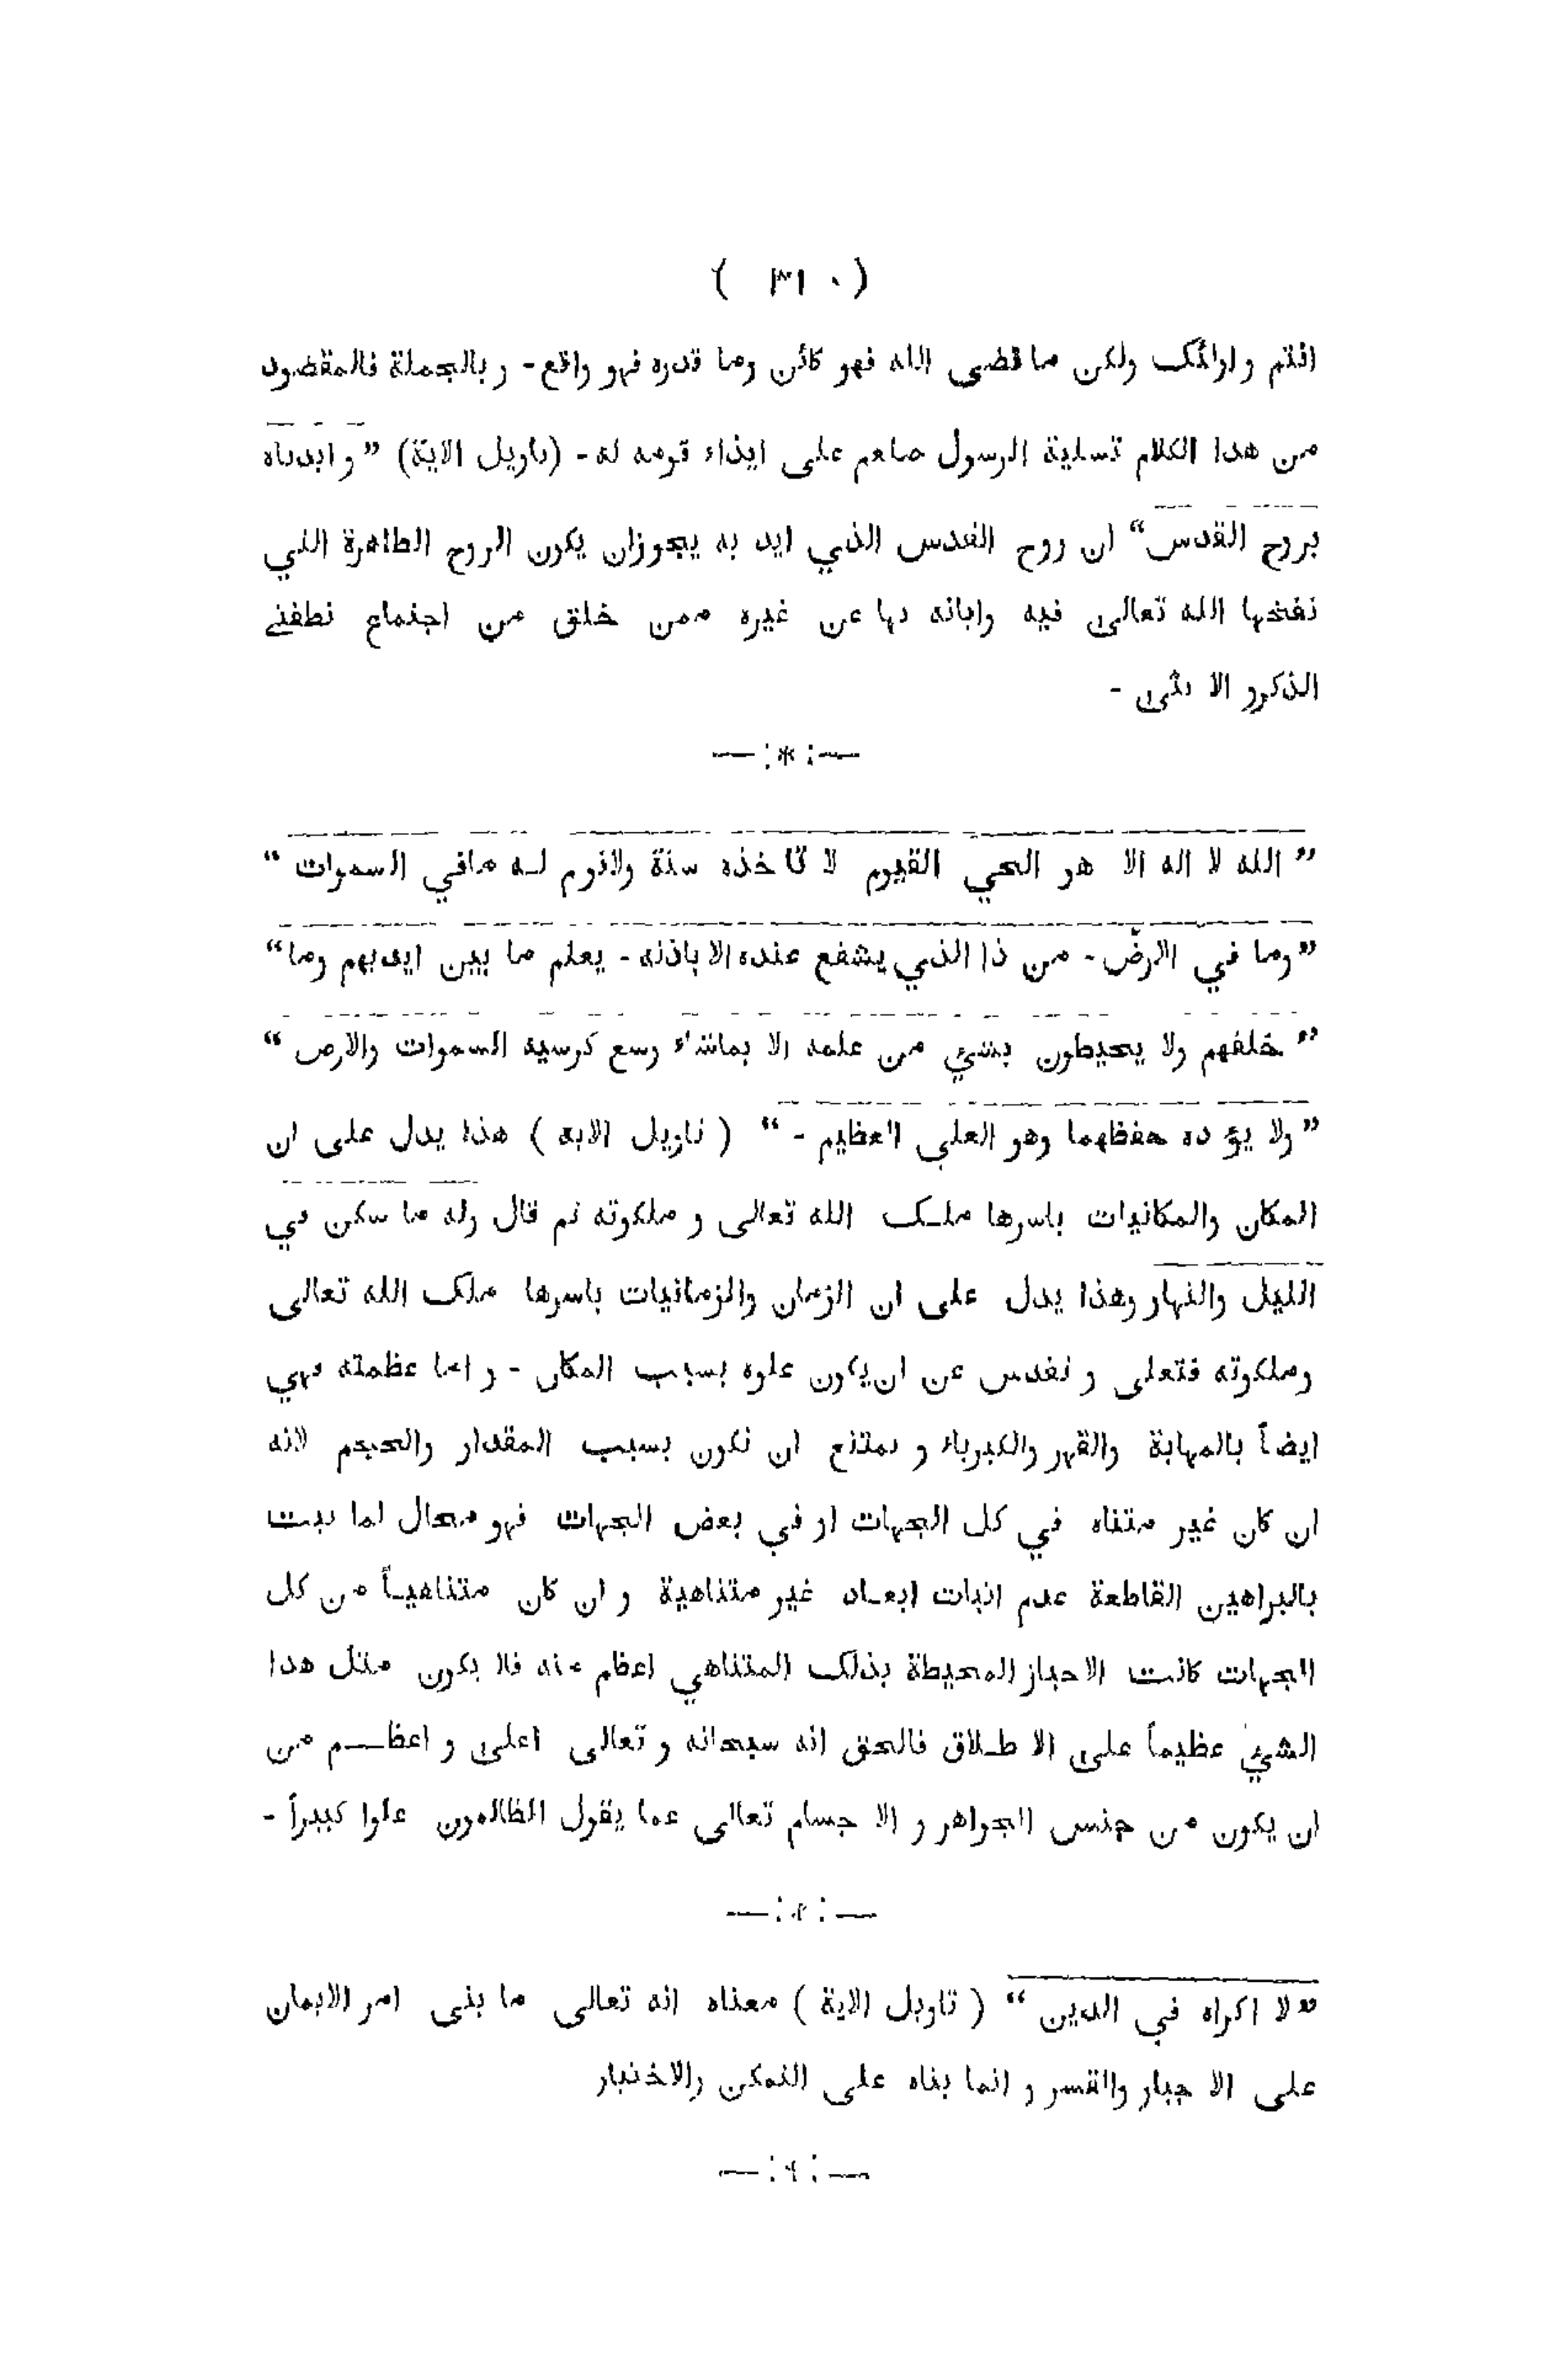 ( ٣١٠ )
انتم و اولئک ولکن ما قضی الله فهو کائن وما قدره فهو واقع - و بالجملة فالمقصود
من هذا الکلام تسلیة الرسول صلعم علی ایذاء قومه له - (تاویل الایة) ” و ایدناه
بروح القدس “ ان روح القدس الذي اید به یجوزان یکون الروح الطاهرة التي
نفخها الله تعالی فیه وابانه بها عن غیره ممن خلق من اجتماع نطفتے
الذکرو الا نثی -
—:*:—
” الله لا اله الا هو الحي القیوم لا تا خذه سنة ولانوم لـه مافي السموات “
” وما في الارض - من ذا الذي یشفع عنده الا باذنه - یعلم ما بین ایدیهم وما “
” خلفهم ولا یحیطون بشئ من علمه الا بماشاء وسع کرسیه السموات والارض “
” ولا یؤ ده حفظهما وهو العلي العظیم - “ ( تاویل الایة ) هذا یدل علی ان
المکان والمکانیات باسرها ملـک الله تعالی و ملکوته ثم قال وله ما سکن في
اللیل والنهار وهذا یدل علی ان الزمان والزمانیات باسرها ملک الله تعالی
وملکوته فتعلی و تقدس عن ان یکون علوه بسبب المکان - و اما عظمته فهي
ایضاً بالمهابة والقهر والکبریاء و یمتنع ان تکون بسبب المقدار والحجم لانه
ان کان غیر متناه في کل الجهات او في بعض الجهات فهو محال لما ثبت
بالبراهین القاطعة عدم اثبات ابعـاد غیر متناهیة و ان کان متناهیـاً من کل
الجهات کانت الاحیاز المحیطة بذلک المتناهي اعظم منه فلا یکون مثل هذا
الشئ عظیماً علی الا طـلاق فالحق انه سبحانه و تعالی اعلی و اعظـــم من
ان یکون من جنس الجواهر و الا جسام تعالی عما یقول الظالمون علوا کبیراً -
—:*:—
” لا اکراه في الدین “ ( تاویل الایة ) معناه انه تعالی ما بنی امر الایمان
علی الا جبار والقسر و انما بناه علی التمکن والاختیار
—:*:—